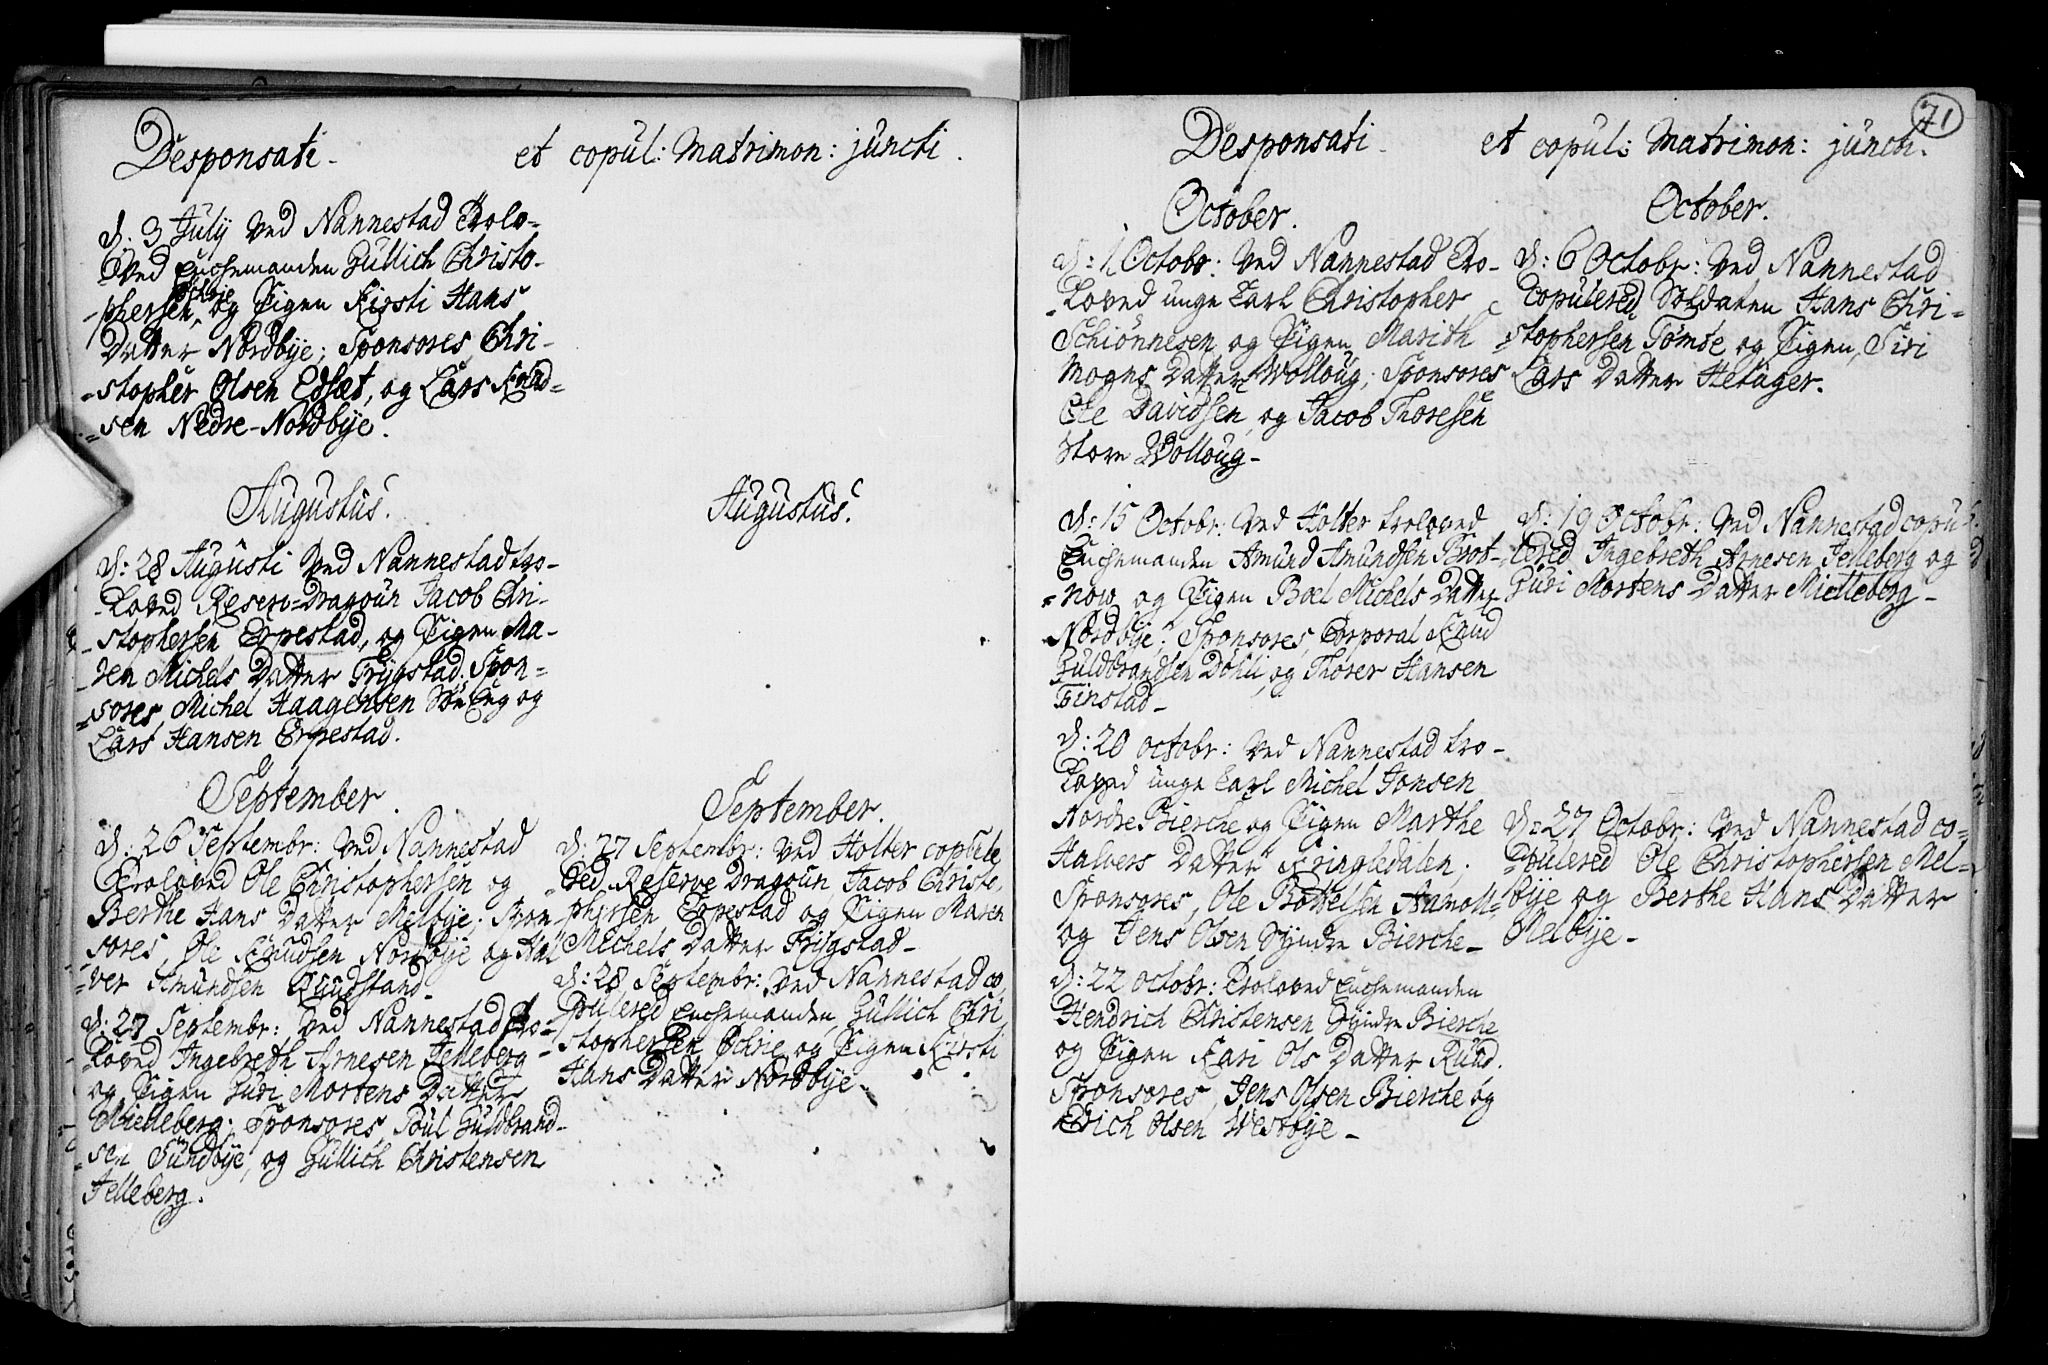 Desponsati et copul: Matrimon: juncti.
d: 3 July ved Nannestad Trolo-
-ved Enchemanden Gullich Christo-
-phersen Ochrie, og Pigen Kirsti Hans
Datter Nordbye; Sponsores, Chri-
-stopher Olsen Edsæt, og Lars Knud-
-sen Nedre-Nordbye.
Augustus.
d: 28 Augusti ved Nannestad tro-
-loved Reserv-Dragoun Jacob Chri-
-stophersen Erpestad, og Pigen Ma-
-ren Michels Datter Trygstad; Spon-
-sores, Michel Haagensen og
Lars Hansen Erpestad.
September.
d: 26 Septembr: ved Nannestad
Troloved Ole Christophersen og
Berthe Hans Datter Melbye; Spon
-sores, Ole Knudsen Nordbye og Hal
-ver Amundsen Ruudstand.
d: 27 Septembr: ved Nannestad Tro-
-loved Ingebreth Arnesen Jelleberg
og Pigen Guri Mortens Datter
Mielleberg; Sponsores Poul Guldbrand-
-sen Sundbye, og Gullich Christensen
Jelleberg.
Augustus.
September.
d: 27 Septembr: ved Holter copule
-red Reserve Dragoun Jacob Christo-
phersen Erpestad og Pigen Maren
Michels Datter Trygstad-
d: 28 Septembr: ved Nannestad co
pulered Enchemanden Gullich Chri
stophersen Ochrie og Pigen Kirsti
Hans Datter Nordbye-
71
Desponsati et copul: Matrimon: juncti.
October.
d: 1 Octobr: ved Nannestad Tro-
-loved unge Carl Christopher
Schiönnesen og Pigen Marith
Mogns Datter Wolloug; Sponsores
Ole Davidsen, og Jacob Thoresen
Store Wolloug-
d: 15 Octobr: ved Holter troloved
Enchemanden Amund Amundsen Brot-
-now og Pigen Boel Michels Datter
Nordbye; Sponsores, Corporal Knud
Guldbrandsen Dohli, og Thorer Hansen
Finstad-
d: 20 octobr: ved Nannestad tro-
loved unge Carl Michel Jonsen
Nordre Bierche og Pigen Marthe
Halvers Datter Kringledalen;
Sponsores, Ole Bottelsen Aamoll
og Jens Olsen Syndre Bierche-
d: 22 octobr: Troloved Enchemanden
Hendrich Christensen Syndre Bierche
og Pigen Kari Ols Datter Ruud.
Sponsores, Jens Olsen Bierche og
Erich Olsen Westbye-
October.
d: 6 Octobr: ved Nannestad
Copulered Soldaten Hans Chri-
-stophersen Tømte, og Pigen, Siri
Lars Datter Hetager.
d: 19 Octobr: ved Nannestad copu
lered Ingebreth Arnesen Jelleberg og
Guri Mortens Datter Mielleberg-
d: 27 Octobr: ved Nannestad co-
-pulered Ole Christophersen Mel-
-bye og Berthe Hans Datter
Melbye-